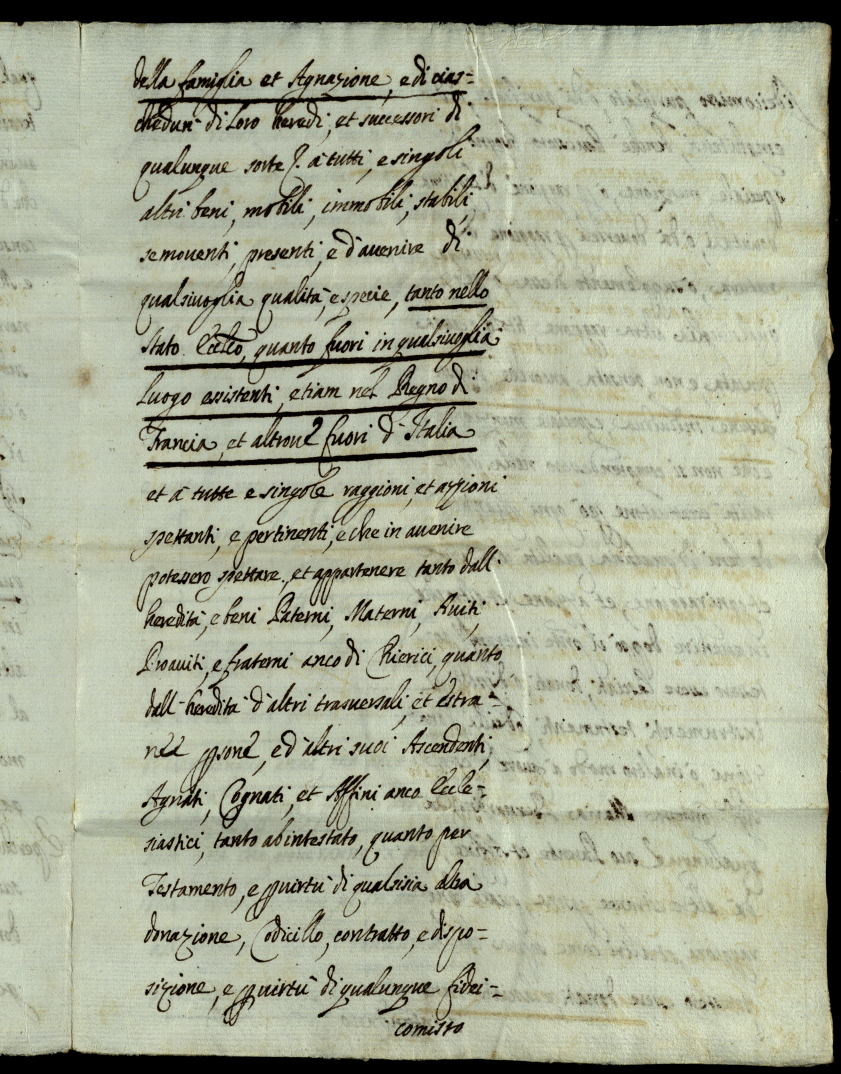 della famiglia et Agnazione, e di cias=
chedun di loro heredi, et successori di
qualunque sorte p. à tutti, e singoli
altri beni, mobili, immobili, stabili,
semoventi, presenti, e d'auenire di
qualsiuoglia qualità, e specie, tanto nello
stato Eccl.co, quanto fuori in qualsiuoglia
luogo existenti, etiam nel Regno di
Francia, et altroue fuori d'Italia
et à tutte e singole raggioni, et azzioni
spettanti, e pertinenti, e che in auenire
potessero spettare, et appartenere tanto dall'
heredità, e beni Paterni, Materni, Auiti,
Proauiti, e fraterni anco di Chierici, quanto
dall'heredità d'altri trasuersali, et estra=
nee ppsone, e d'altri suoi Ascendenti,
Agnati, Cognati, et Affini anco Eccle=
siastici, tanto ab intestato, quanto per
Testamento, e p uirtù di qualsisia altra
donazione, Codicillo, contratto, e dispo=
sizione, e p uirtù di qualunque fidei=
comisso